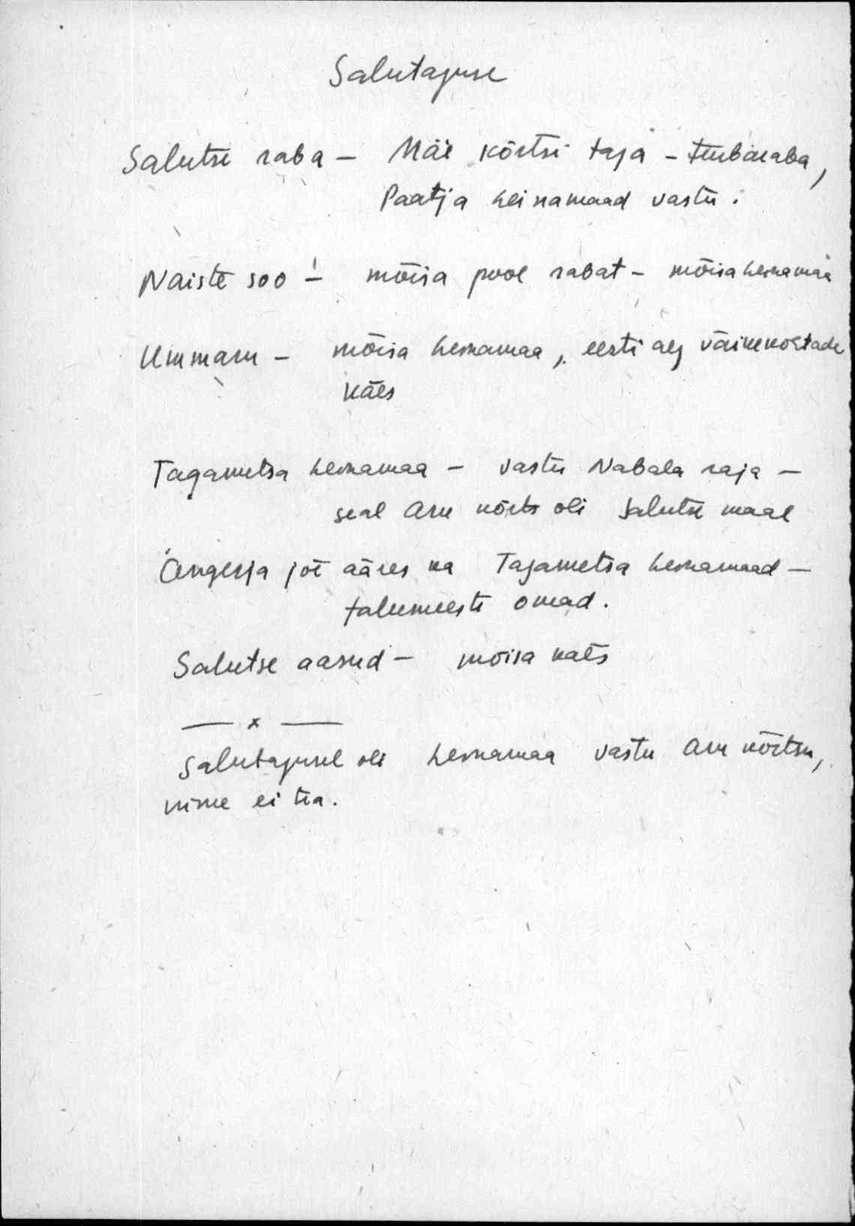 Salutaguse
Salutse raba — Mäe kõrtsi taga - turbaraba,
Paatja heinamaad vastu.
Naiste soo — mõisa pool rabat — mõisaheinamaa
Ummaru — mõisa heinamaa, eesti aeg väikekohtade
käes
Tagametsa heinamaa — vastu Nabala raja —
seal Aru kõrts oli Salutse maal
Ängerja jõe ääres ka Tagametsa heinamaad —
talumeeste omad.
Salutse aasud — mõisa käes
— x —
Salutagusel oli heinamaa vastu Aru kõrtsu,
nime ei tea.